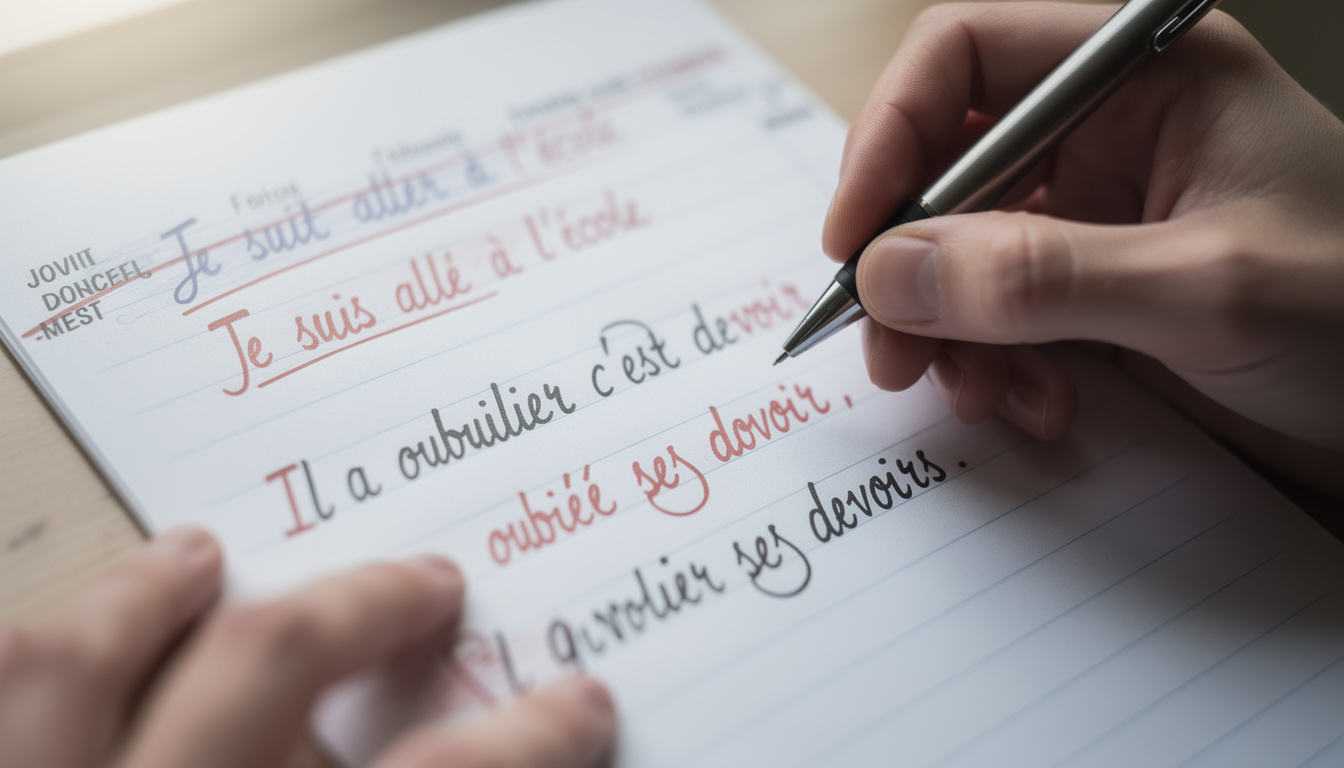 Je suit aller à l'école
JOVIIT
DONCEEL
-MEST
Je suis allé à l'école
Il a oubuilier c'est devoir
oubiéé ses dovoir,
ses devoirs.